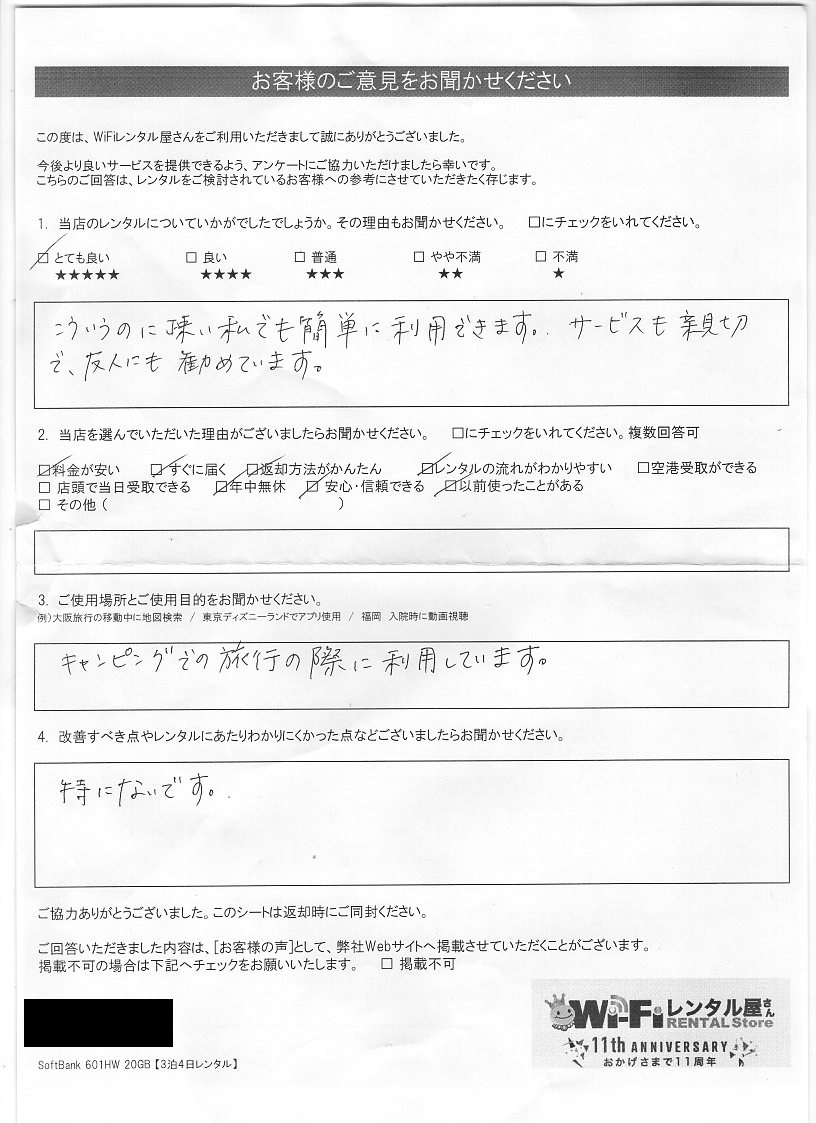 お客様のご意見をお聞かせください
この度は、WiFiレンタル屋さんをご利用いただきまして誠にありがとうございました。
今後より良いサービスを提供できるよう、アンケートにご協力いただけましたら幸いです。
こちらのご回答は、レンタルをご検討されているお客様への参考にさせていただきたく存じます。
1. 当店のレンタルについていかがでしたでしょうか。その理由もお聞かせください。 □にチェックをいれてください。
☑ とても良い □ 良い □ 普通 □ やや不満 □ 不満
★★★★★ ★★★★ ★★★ ★★ ★
こういうのに疎い私でも簡単に利用できます。サービスも親切
で、友人にも勧めています。
2. 当店を選んでいただいた理由がございましたらお聞かせください。 □にチェックをいれてください。複数回答可
☑料金が安い ☑すぐに届く ☑返却方法がかんたん ☑レンタルの流れがわかりやすい □空港受取ができる
□ 店頭で当日受取できる ☑年中無休 ☑ 安心・信頼できる ☑以前使ったことがある
□ その他 ( )
3. ご使用場所とご使用目的をお聞かせください。
例)大阪旅行の移動中に地図検索 / 東京ディズニーランドでアプリ使用 / 福岡 入院時に動画視聴
キャンピングでの旅行の際に利用しています。
4. 改善すべき点やレンタルにあたりわかりにくかった点などございましたらお聞かせください。
特にないです。
ご協力ありがとうございました。このシートは返却時にご同封ください。
ご回答いただきました内容は、[お客様の声]として、弊社Webサイトへ掲載させていただくことがございます。
掲載不可の場合は下記へチェックをお願いいたします。 □ 掲載不可
Wi-Fiレンタル屋さん
RENTAL Store
11th ANNIVERSARY
おかげさまで11周年
SoftBank 601HW 20GB【3泊4日レンタル】